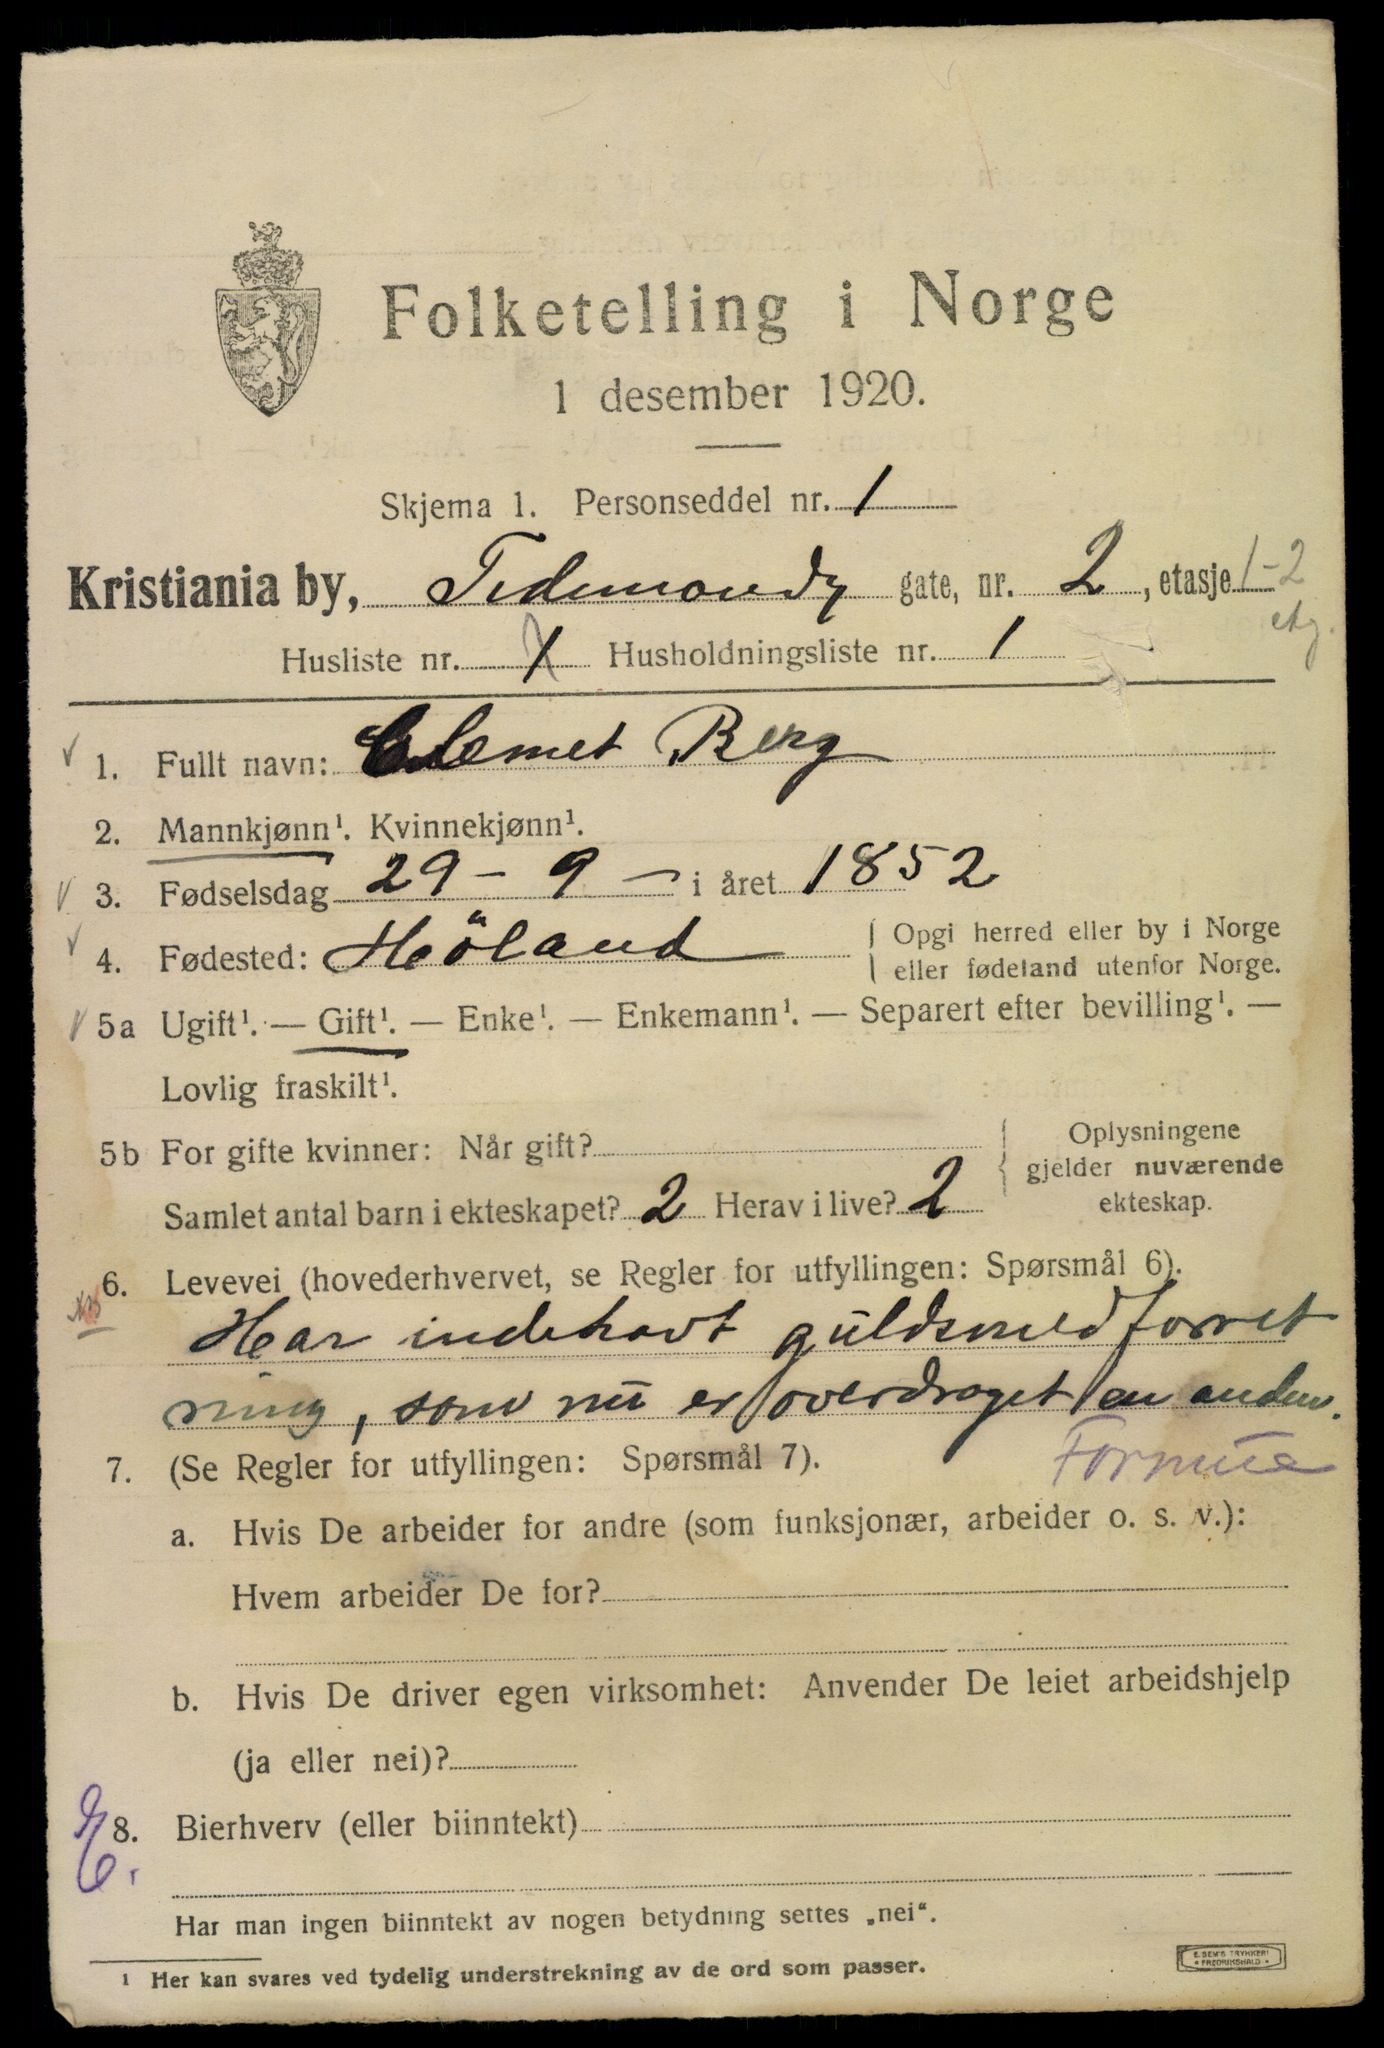 Folketelling i Norge
1 desember 1920.
Skjema 1. Personseddel nr. 1
Kristiania by, Tidemands gate, nr. 2, etasje 1-2
etg.
Husliste nr. 1 Husholdningsliste nr. 1
1. Fullt navn: Clemet Berg
2. Mannkjønn¹. Kvinnekjønn¹.
3. Fødselsdag 29 - 9 - i året 1852
4. Fødested: Höland
Opgi herred eller by i Norge
eller fødeland utenfor Norge.
5a Ugift¹. — Gift¹. — Enke¹. — Enkemann¹. — Separert efter bevilling¹. —
Lovlig fraskilt¹.
5b For gifte kvinner: Når gift?
Samlet antal barn i ekteskapet? 2 Herav i live? 2
Oplysningene
gjelder nuværende
ekteskap.
6. Levevei (hovederhvervet, se Regler for utfyllingen: Spørsmål 6).
Har indehavt guldsmedforret
ning, som nu er overdraget en anden.
Formue
7. (Se Regler for utfyllingen: Spørsmål 7).
a. Hvis De arbeider for andre (som funksjonær, arbeider o. s. v.):
Hvem arbeider De for?
b. Hvis De driver egen virksomhet: Anvender De leiet arbeidshjelp
(ja eller nei)?
8. Bierhverv (eller biinntekt)
Har man ingen biinntekt av nogen betydning settes „nei“.
¹ Her kan svares ved tydelig understrekning av de ord som passer.
E. SEM'S TRYKKERI
* FREDRIKSHALD *